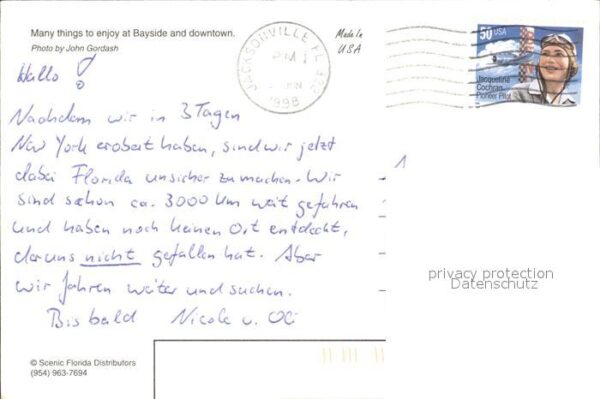 Many things to enjoy at Bayside and downtown.
Photo by John Gordash
Hallo!
Nachdem wir in 3 Tagen
New York erobert haben, sind wir jetzt
dabei Florida unsicher zu machen. Wir
sind schon ca. 3000 km weit gefahren
und haben noch keinen Ort entdeckt,
der uns nicht gefallen hat. Aber
wir fahren weiter und suchen.
Bis bald Nicole u. Oli
© Scenic Florida Distributors
(954) 963-7694
Made in
USA
JACKSONVILLE FL
PM
JUN
1998
50 USA
Jacqueline
Cochran
Pioneer Pilot
privacy protection
Datenschutz